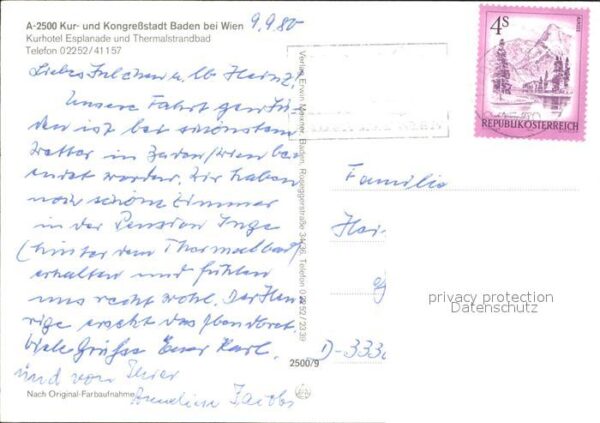 A-2500 Kur- und Kongreßstadt Baden bei Wien
Kurhotel Esplanade und Thermalstrandbad
Telefon 02252/41157
9.9.80
Liebes Julchen u. lb Heinz!
Unsere Fahrt gen Sü-
den ist bei schönstem
Wetter in Baden/Wien be-
endet worden. Wir haben
noch schöne Zimmer
in der Pension Inge
(hinter dem Thermalbad)
erhalten und fühlen
uns recht wohl. Der Heu-
rige ersetzt das Abendbrot.
Viele Grüße Euer Karl.
und von Ihrer
Anneliese Jacobs
Nach Original-Farbaufnahme
2500/9
Verlag Erwin Mexner, Baden, Roseggerstraße 34/36, Telefon 0 22 52 / 2339
4S
REPUBLIK ÖSTERREICH
Familie
Hei
D-333
privacy protection
Datenschutz